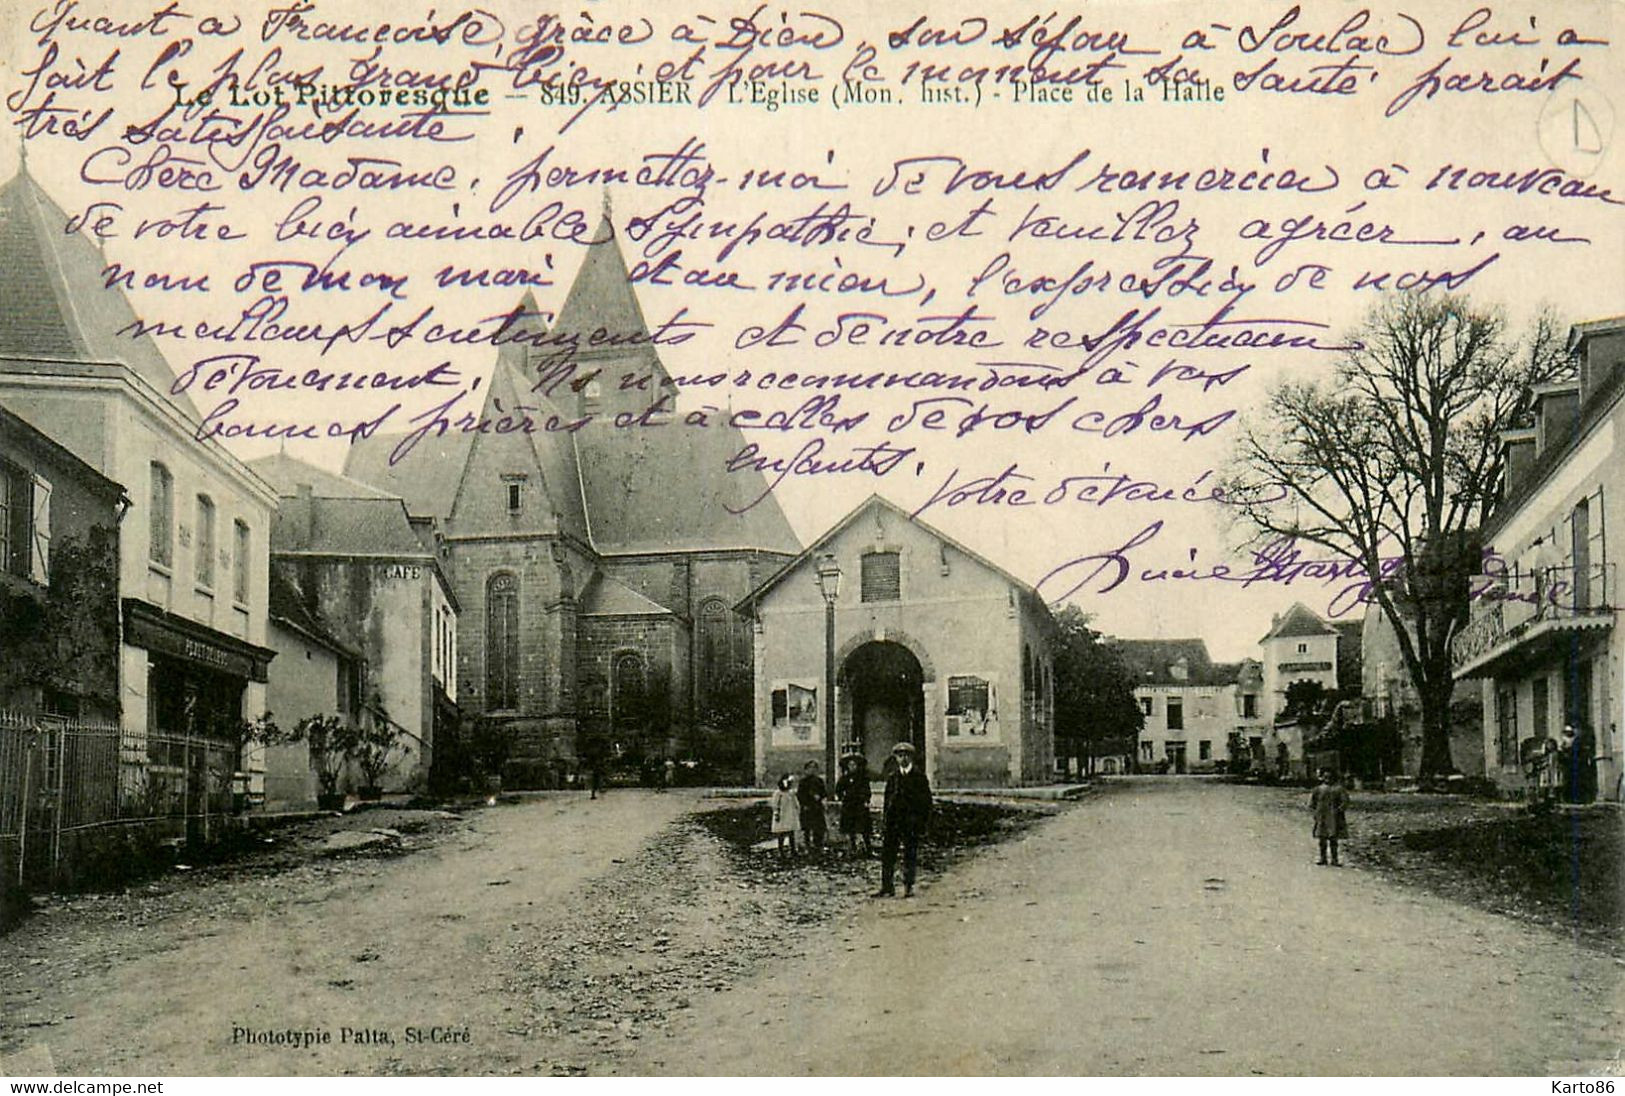 Quant à Françoise, grâce à Dieu, son séjour à Soulac lui a
fait le plus grand bien, et pour le moment sa santé parait
Le Lot Pittoresque - 849. ASSIER L'Eglise (Mon. hist.) - Place de la Halle
très satisfaisante.
Chère Madame, permettez-moi de vous remercier à nouveau
de votre bien aimable sympathie, et veuillez agréer, au
nom de mon mari et au mien, l'expression de nos
meilleurs sentiments et de notre respectueux
dévouement. Ns nous recommandons à vos
bonnes prières et à celles de vos chers
enfants.
Votre dévouée
CAFÉ
Phototypie Palta, St-Céré
www.delcampe.net
Karto86
D